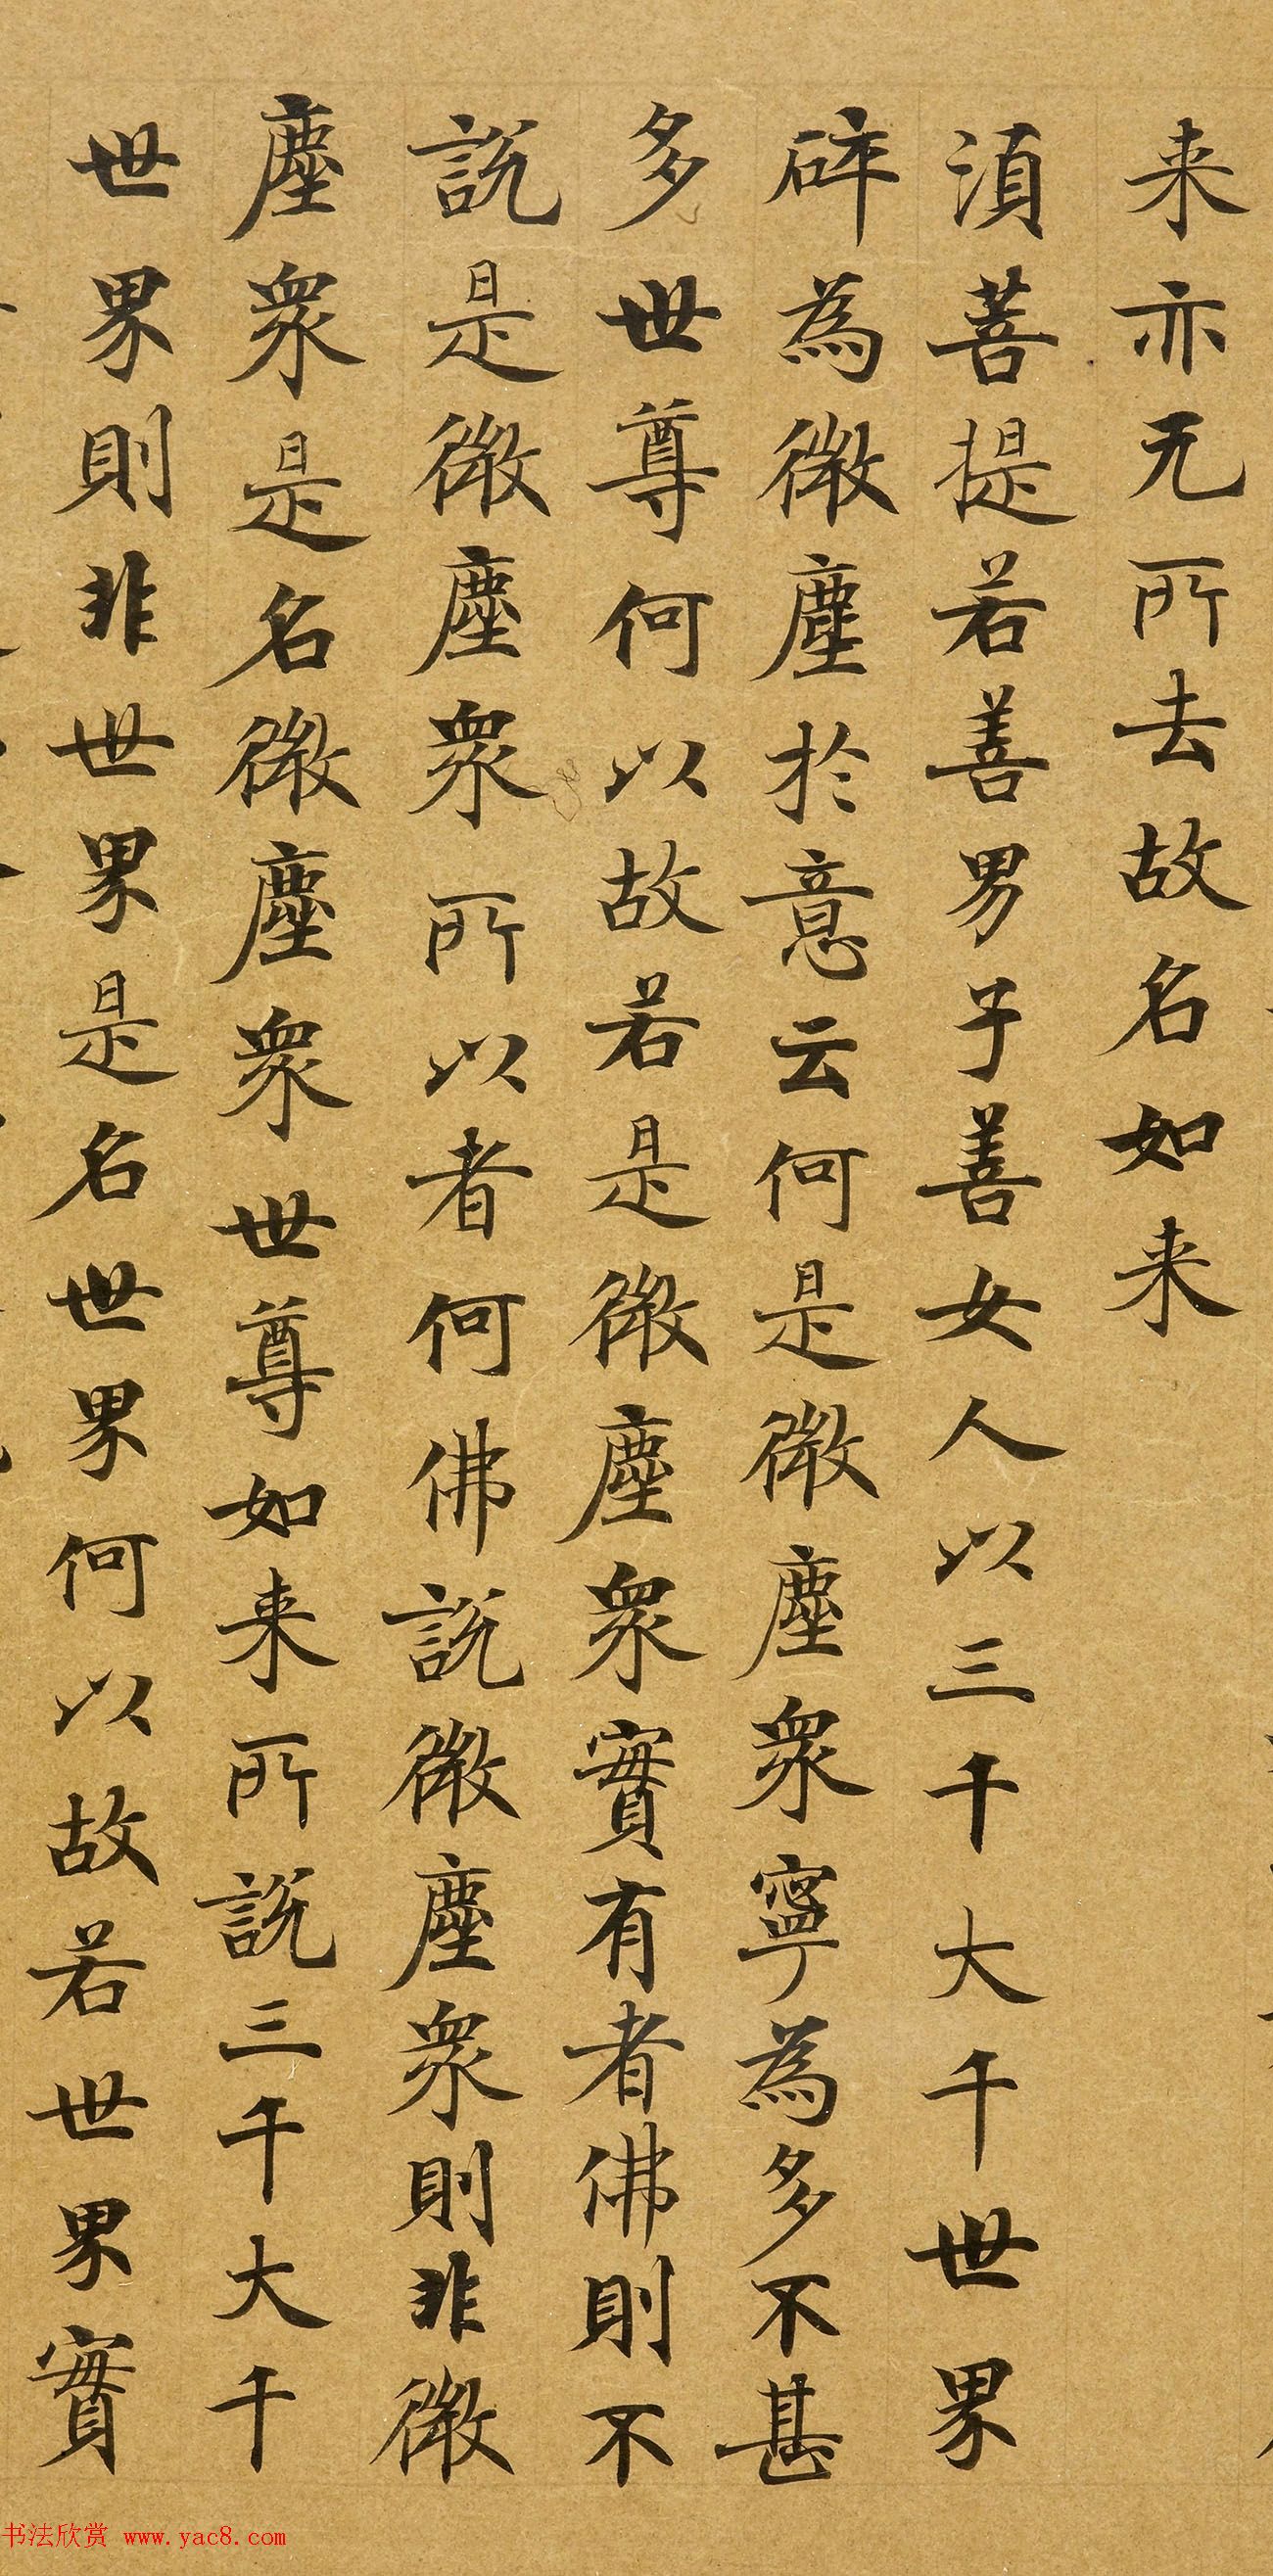 来亦无所去故名如来
湏菩提若善男子善女人以三千大千世界
碎為微塵於意云何是微塵衆寧為多不甚
多世尊何以故若是微塵衆實有者佛則不
說是微塵衆所以者何佛說微塵衆則非微
塵衆是名微塵衆世尊如来所說三千大千
世界則非世界是名世界何以故若世界實
书法欣赏 www.yac8.com